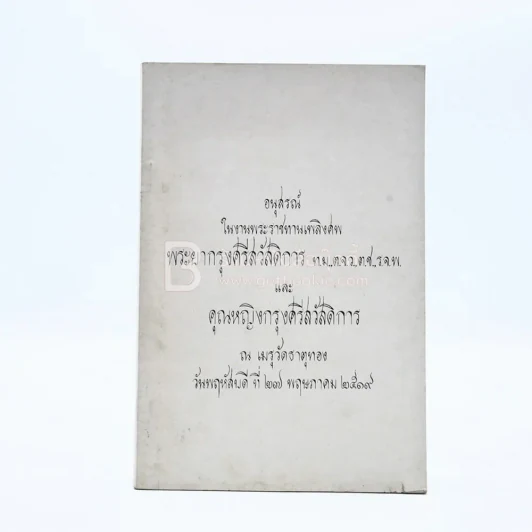 อนุสรณ์
ในงานพระราชทานเพลิงศพ
พระยากรุงศรีสวัสดิการ ท.ม.,ต.จ.ว.,ต.ช.,ร.จ.พ.
และ
คุณหญิงกรุงศรีสวัสดิการ
ณ เมรุวัดธาตุทอง
วันพฤหัสบดี ที่ ๒๗ พฤษภาคม ๒๕๑๙